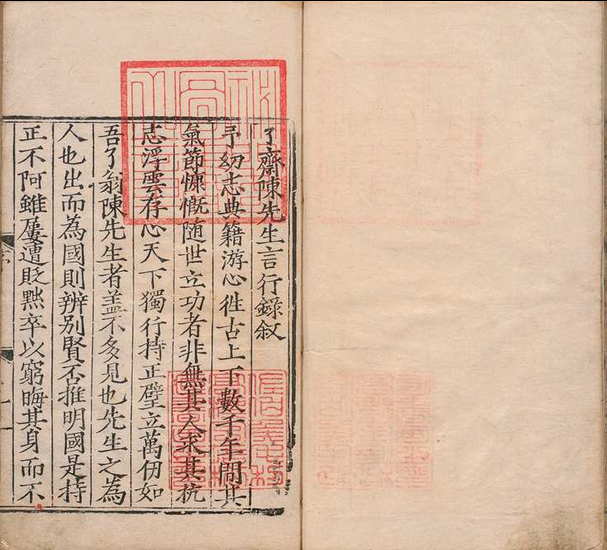 了齋陳先生言行録叙
予幼志典籍游心徃古上下數千年間其
氣節慷慨随世立功者非無其人求其抗
志浮雲存心天下獨行持正壁立萬仞如
吾了翁陳先生者盖不多見也先生之為
人也出而為國則辨别賢否推明國是持
正不阿雖屢遭貶黜卒以窮晦其身而不